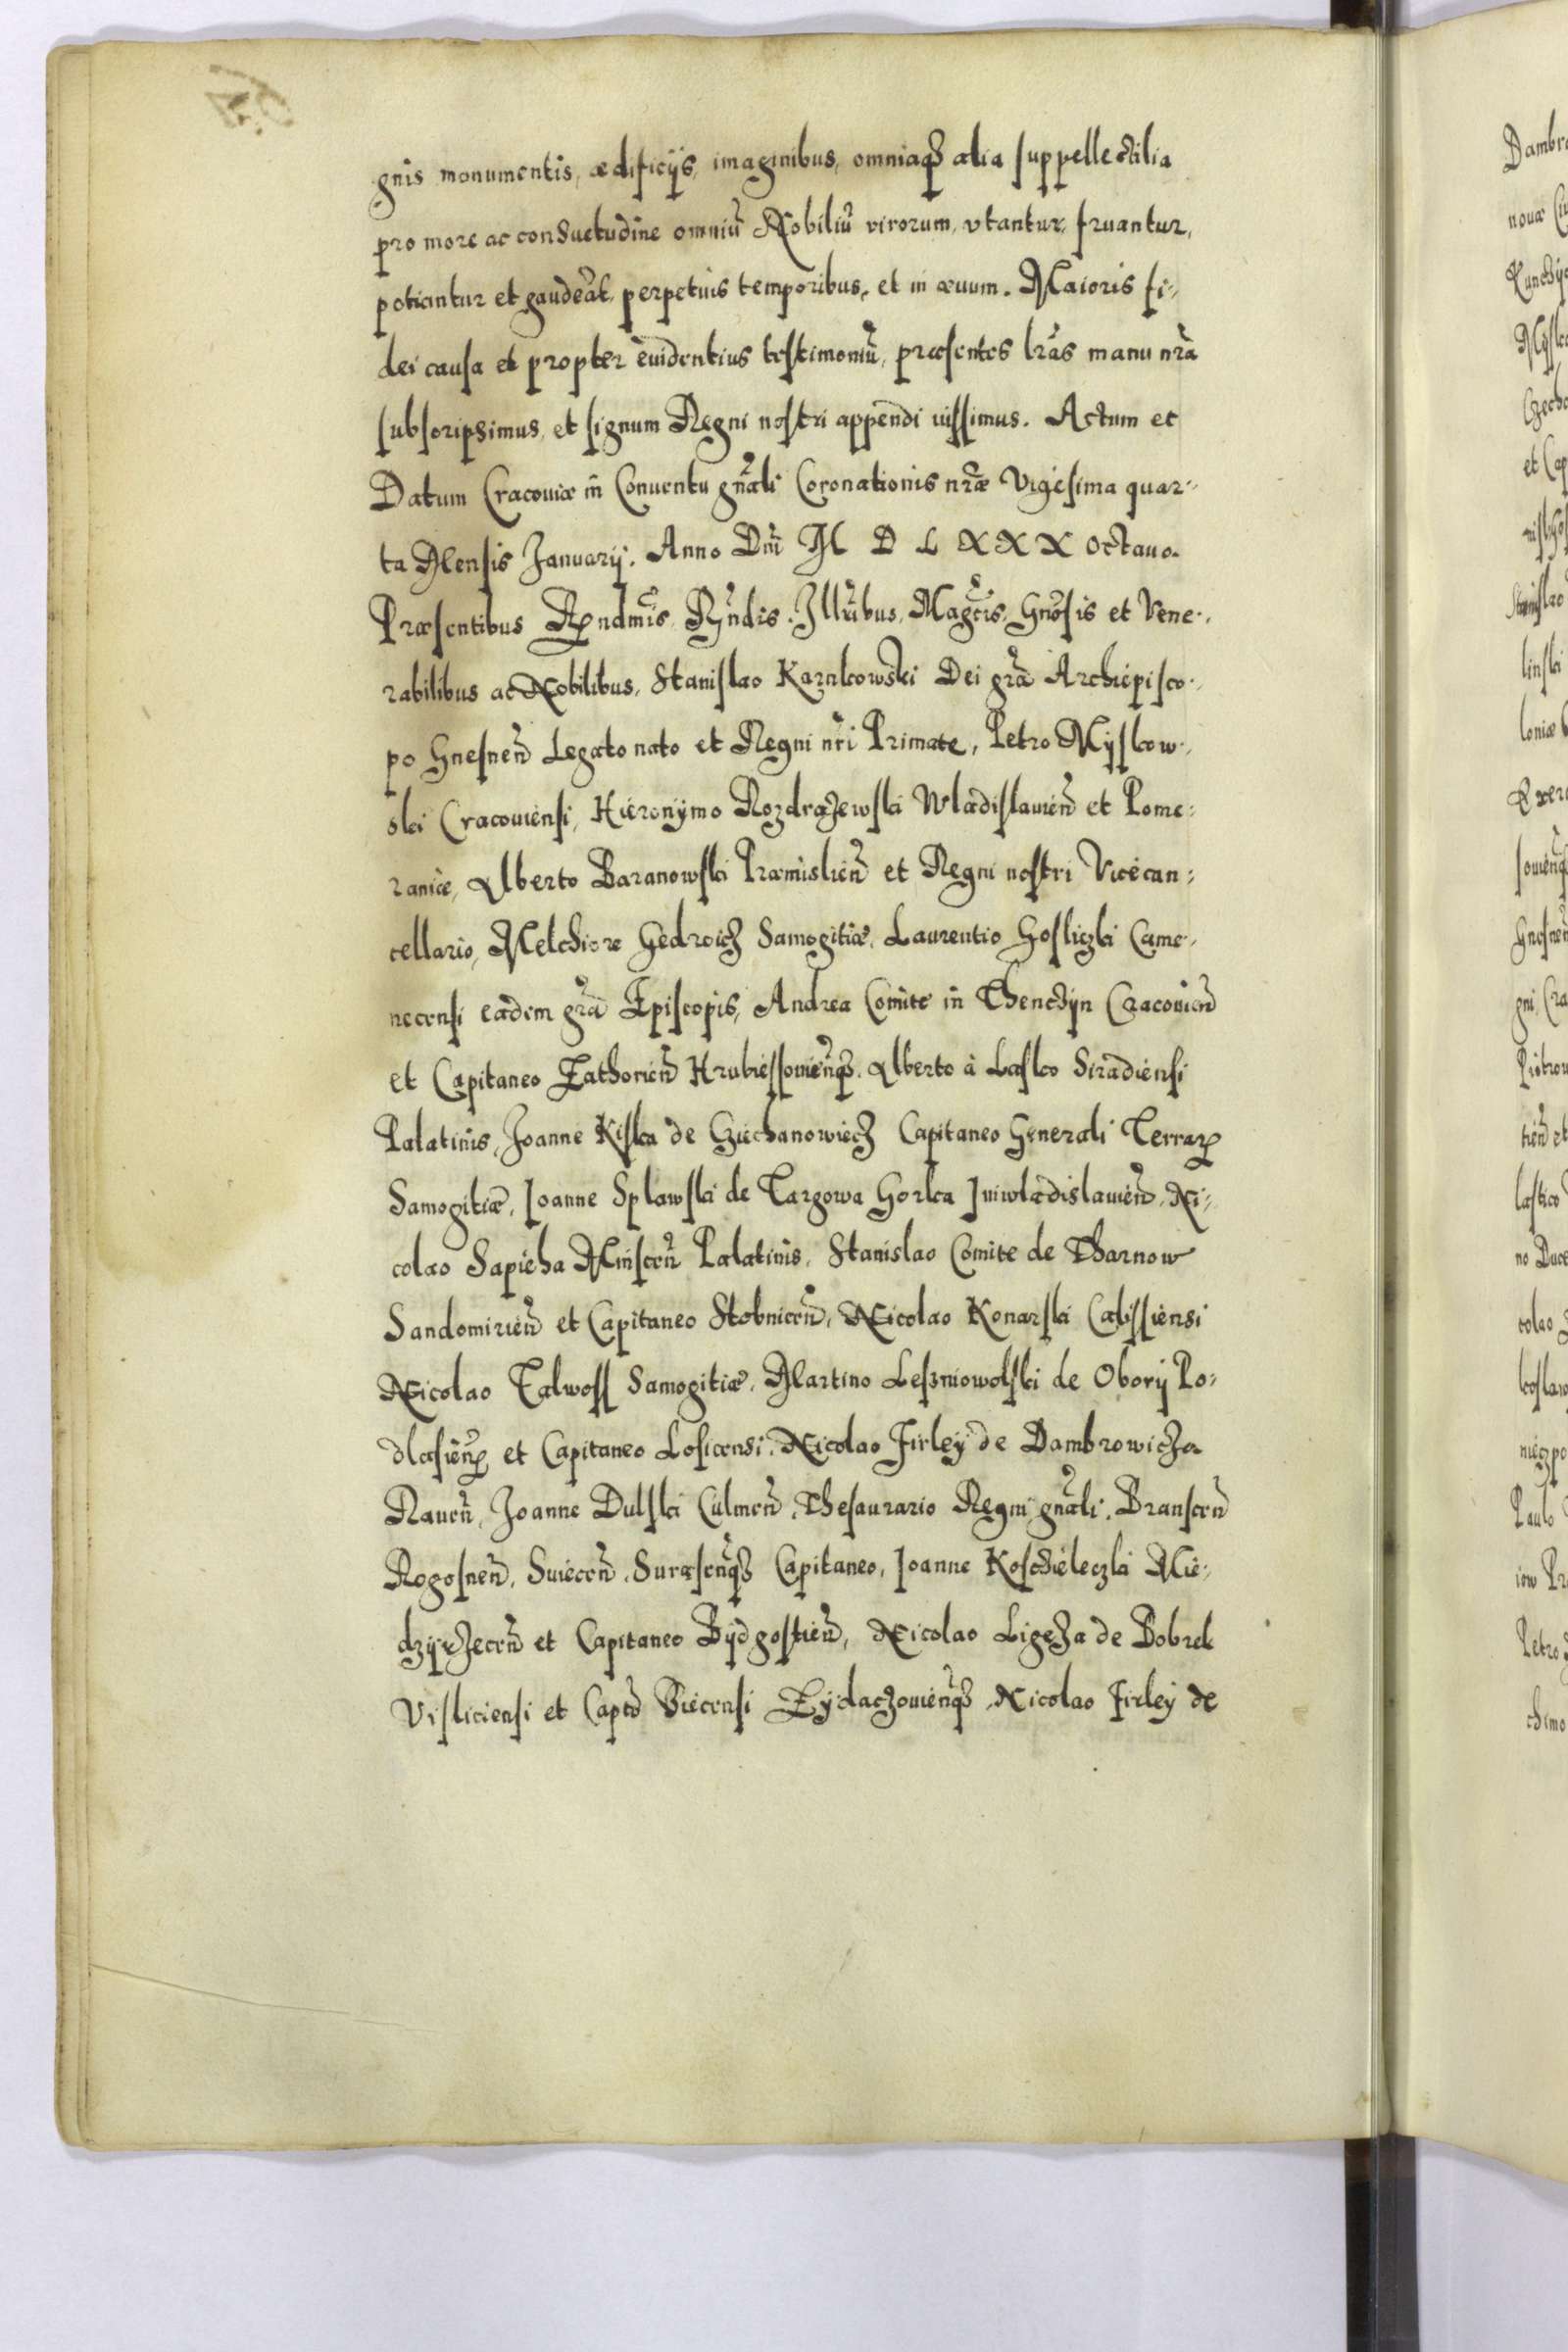 gnis monumentis, ædificijs, imaginibus, omniaqȝ alia suppellectilia
pro more ac consuetudine omniũ Nobiliũ virorum, vtantur, fruantur,
potiantur et gaudeãt, perpetuis temporibus, et in æuum. Maioris fi-
dei causa et propter euidentius testimoniũ, præsentes lrãs manu nrã
subscripsimus, et signum Regni nostri appendi iussimus. Actum et
Datum Cracouiæ in Conuentu gnãli Coronationis nrãe Vigesima quar-
ta Mensis Januarij. Anno Dni M D L X X X Octauo.
Præsentibus Rndmis, Rndis, Illribus, Magcis, Gnosis et Vene-
rabilibus ac Nobilibus, Stanislao Karnkowski Dei grã Archiepisco-
po Gnesneñ Legato nato et Regni nri Primate, Petro Myskow-
ski Cracouiensi, Hieronymo Rozdrażewski Wladislauieñ et Pome-
raniæ, Alberto Baranowski Præmislieñ et Regni nostri Vicecan-
cellario, Melchiore Gedroicz Samogitiæ, Laurentio Gosliczki Came-
necensi eadem grã Episcopis, Andrea Comite in Thenczyn Cracouieñ
et Capitaneo Zathorieñ Hrubiessouieñqȝ, Alberto à Lasko Siradiensi
Palatinis, Joanne Kiska de Cziechanowiecz Capitaneo Generali Terrarꝝ
Samogitiæ, Joanne Splawski de Targowa Gorka Juiwladislauieñ, Ni-
colao Sapieha Minsceñ Palatinis, Stanislao Comite de Tharnow
Sandomirieñ et Capitaneo Stobniceñ, Nicolao Konarski Calissiensi
Nicolao Talwoss Samogitiæ, Martino Leszniowolski de Obory Po-
dlasieñ, et Capitaneo Losicensi, Nicolao Firley de Dambrowicza
Raueñ, Joanne Dulski Culmeñ, Thesaurario Regni gnãli, Bransceñ
Rogosneñ, Suieceñ, Surasceñqȝ Capitaneo, Joanne Koscieleczki Mie-
dzyrzeceñ et Capitaneo Bydgostieñ, Nicolao Ligeza de Bobrek
Visliciensi et Capto Biecensi Zydaczouieñqȝ, Nicolao Firley de